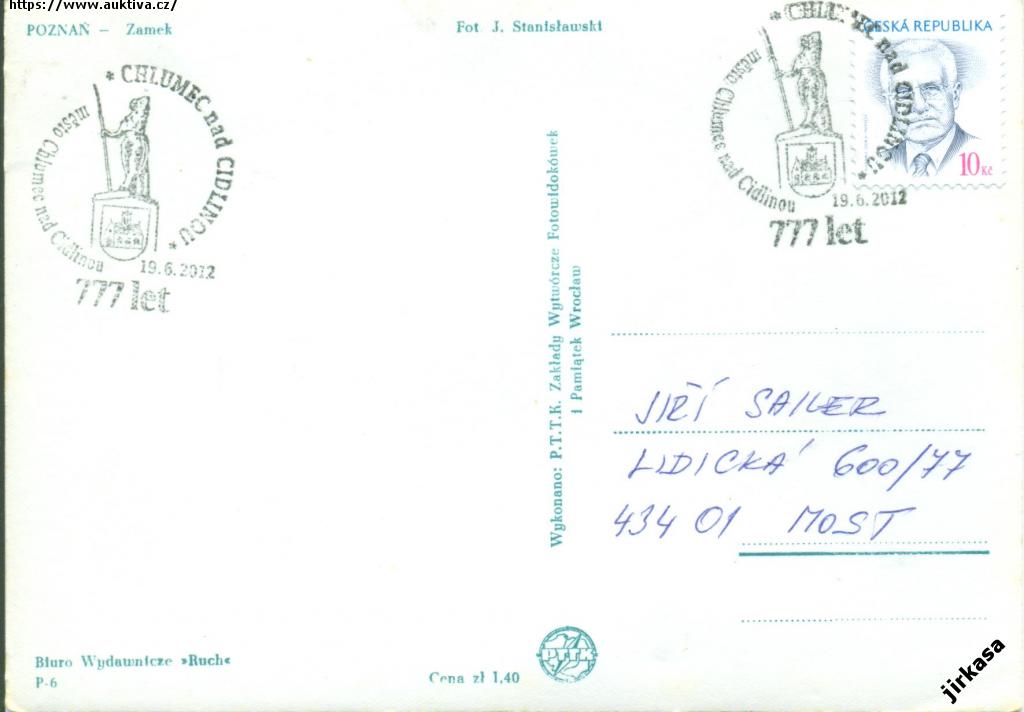 https://www.auktiva.cz/
POZNAŃ – Zamek
Fot. J. Stanisławski
* CHLUMEC nad CIDLINOU *
město Chlumec nad Cidlinou
19.6.2012
777 let
* CHLUMEC nad CIDLINOU *
město Chlumec nad Cidlinou
19.6.2012
777 let
ČESKÁ REPUBLIKA
10 Kč
Wykonano: P.T.T.K. Zakłady Wytwórcze Fotowidokówek
i Pamiątek Wrocław
JIŘÍ SAILER
LIDICKÁ 600/77
434 01 MOST
Biuro Wydawnicze »Ruch«
P-6
Cena zł 1,40
PTTK
jirkasa